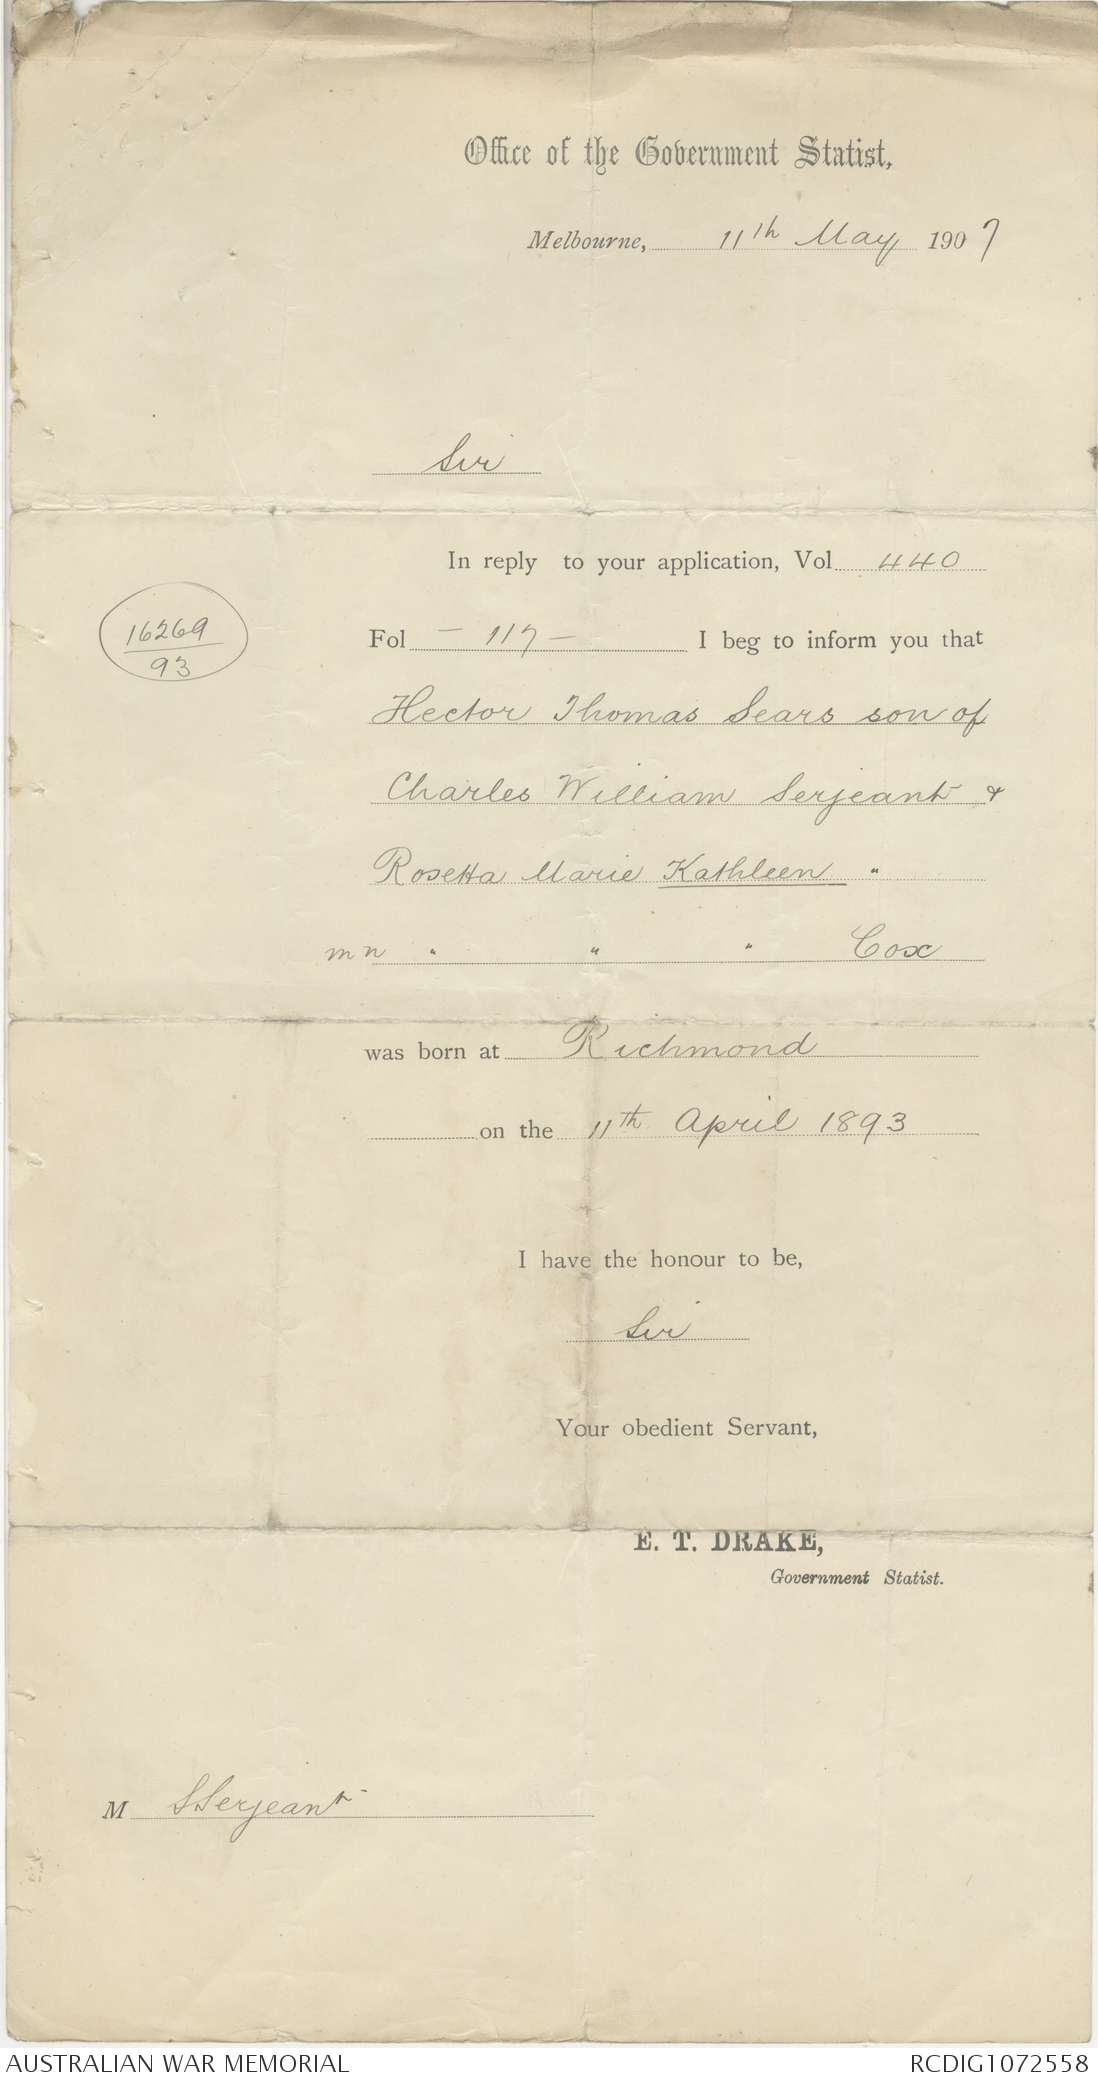 Office of the Government Statist,
Melbourne, 11th May 1907
Sir
In reply to your application, Vol 440
16269
93
Fol - 117 - I beg to inform you that
Hector Thomas Sears son of
Charles William Serjeant &
Rosetta Marie Kathleen "
mn " " " Cox
was born at Richmond
on the 11th April 1893
I have the honour to be,
Sir
Your obedient Servant,
E. T. DRAKE,
Government Statist.
M SSerjeant
AUSTRALIAN WAR MEMORIAL RCDIG1072558